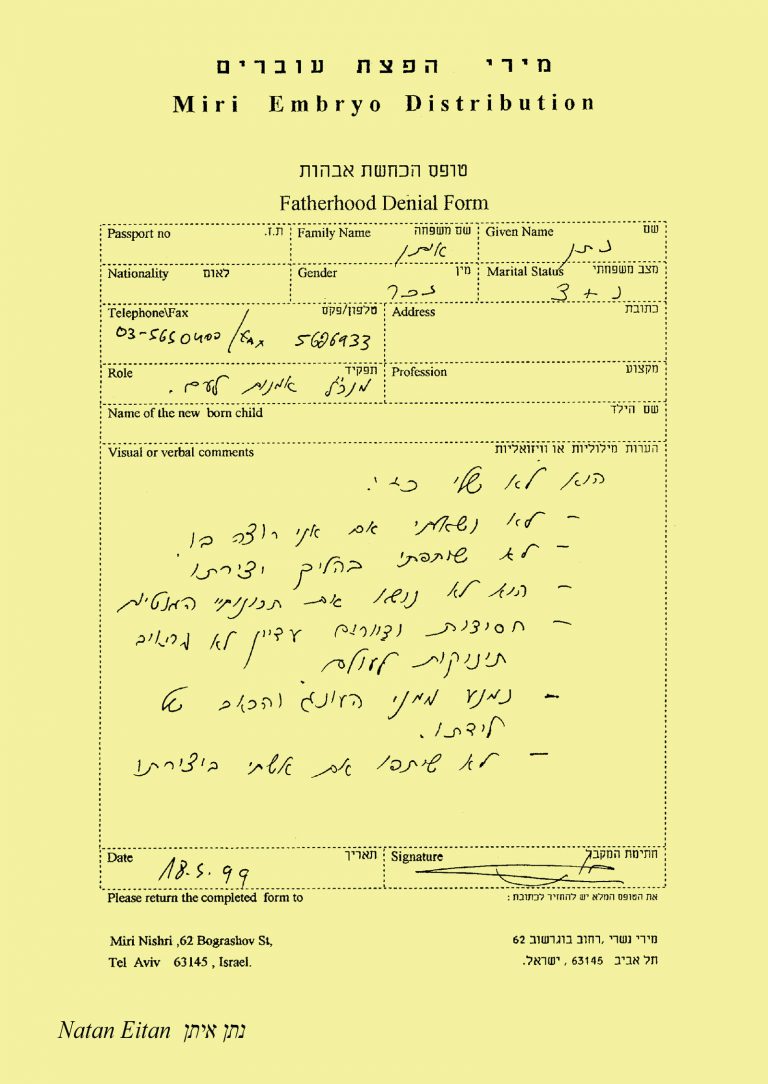 מירי הפצת עוברים
Miri Embryo Distribution
טופס הכחשת אבהות
Fatherhood Denial Form
Passport no ת.ז. Family Name שם משפחה Given Name שם
איתן נתן
Nationality לאום Gender מין Marital Status מצב משפחתי
זכר נ + 3
Telephone\Fax טלפון/פקס Address כתובת
03-5650400 / fax 5696933
Role תפקיד Profession מקצוע
מנכ"ל אמנות לעם.
Name of the new born child שם הילד
Visual or verbal comments הערות מילוליות או וויזואליות
הוא לא שלי כי:
- לא נשאלתי אם אני רוצה בו
- לא שותפתי בהליך יצירתו
- הוא לא נושא את תכונותיי הגנטיות
- חסידות וציורים עדיין לא מביאים
תינוקות לעולם
- נמנע ממני העונג והכאב של
לידתו.
- לא שיתפו את אשתי ביצירתו
Date תאריך Signature חתימת המקבל
18.5.99
Please return the completed form to את הטופס המלא יש להחזיר לכתובת:
Miri Nishri ,62 Bograshov St, מירי נשרי ,רחוב בוגרשוב 62
Tel Aviv 63145 , Israel. תל אביב 63145 , ישראל.
Natan Eitan נתן איתן